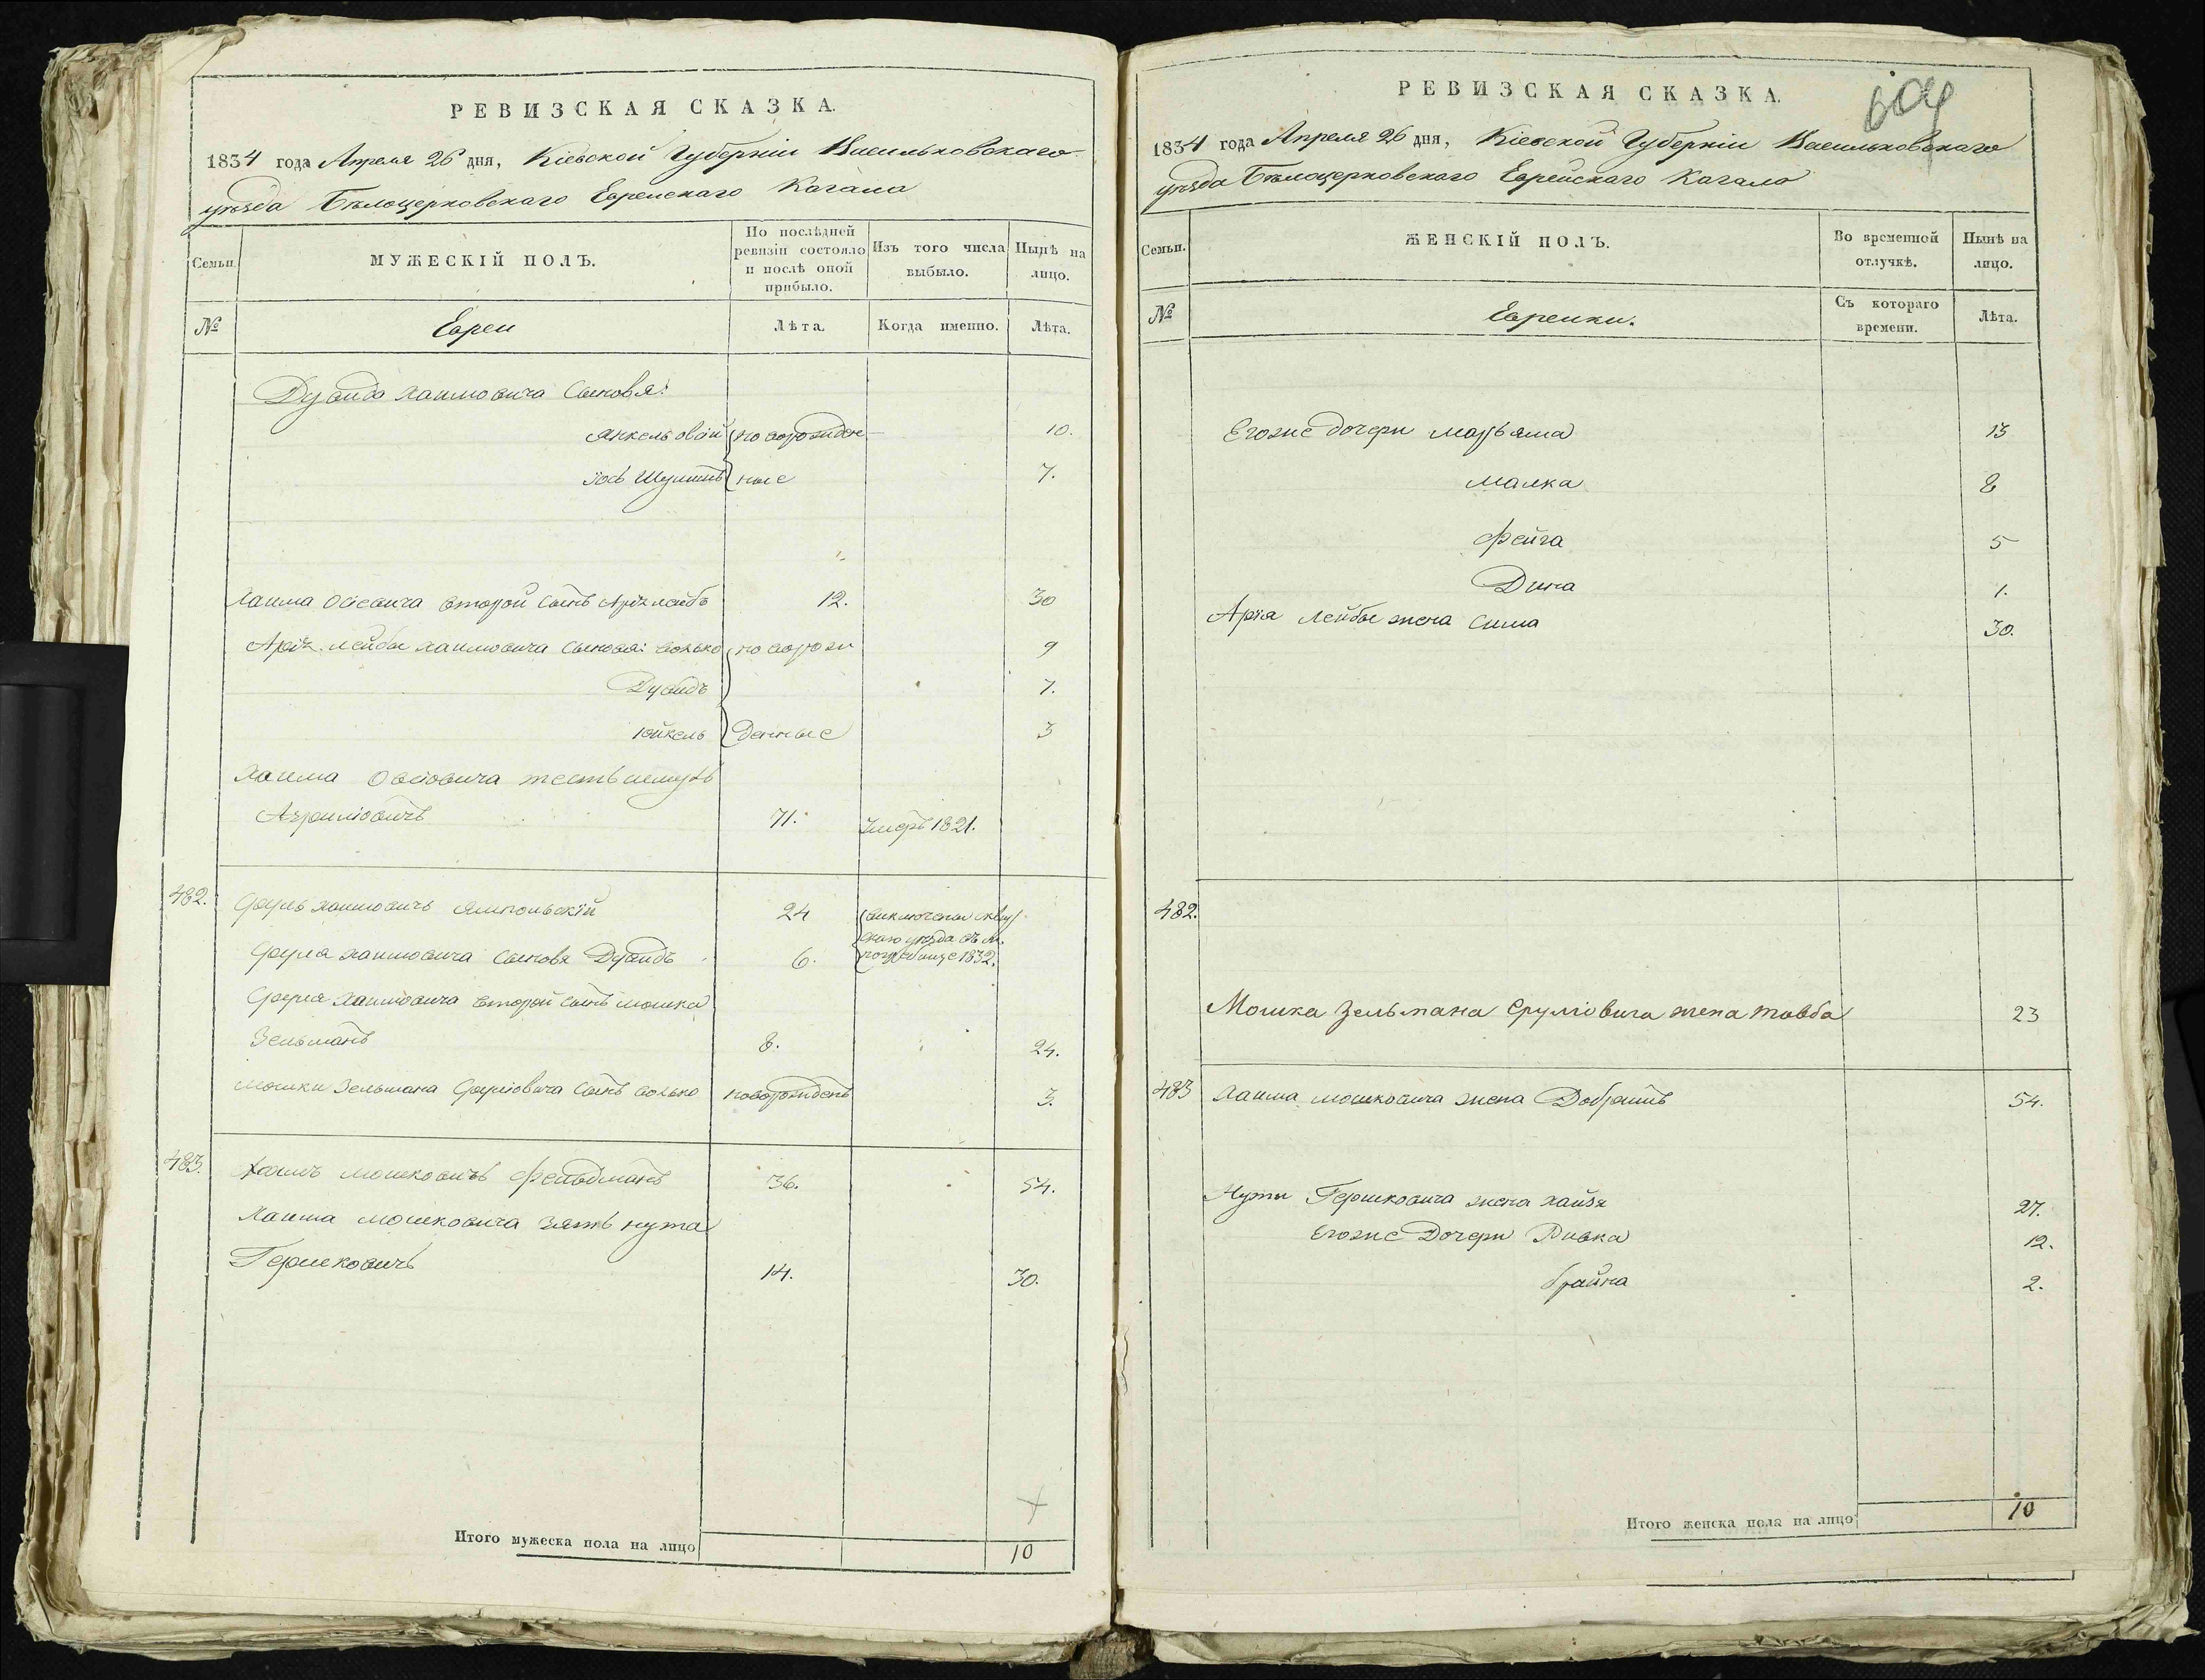 РЕВИЗСКАЯ СКАЗКА.
1834 года Апреля 26 дня, Кіевской Губерніи Васильковскаго
уѣзда Бѣлоцерковскаго Еврейскаго Кагала
Семьи.
МУЖЕСКІЙ ПОЛЪ.
По послѣдней ревизіи состояло и послѣ оной прибыло.
Изъ того числа выбыло.
Нынѣ на лицо.
№
Евреи
Лѣта.
Когда именно.
Лѣта.
Дувида Хаимовича сыновя:
Янкель овсій новорожден 10.
іось Шулимъ ные 7.
Хаима Овсіевича второй сынъ Арія лейбъ 12. 30
Арія лейбы хаимовича сыновя: волько новорож 9
Дувидъ 7.
Юйкель денные 3
Хаима Овсіовича тесть
71. Умеръ 1821.
482. Сруль хаимовичъ ямпольскій 24
Сруля хаимовича сыновя Дувидъ 6. 1832.
Сруля Хаимовича второй сынъ мошка
Зельманъ 8. 24.
мошки Зельмана Сруліовича сынъ волько новорожденъ 3.
483. Хаимъ мошковичъ Фельдманъ 36. 54.
Хаима мошковича зять нута
Гершковичъ 14. 30.
Итого мужеска пола на лицо 10
РЕВИЗСКАЯ СКАЗКА.
604
1834 года Апреля 26 дня, Кіевской Губерніи Васильковскаго
уѣзда Бѣлоцерковскаго Еврейскаго Кагала
Семьи.
ЖЕНСКІЙ ПОЛЪ.
Во временной отлучкѣ.
Нынѣ на лицо.
№
Еврейки.
Съ котораго времени.
Лѣта.
Егоже дочери марьяма 13
малка 8
Фейга 5
Дина 1.
Арія Лейбы жена Сима 30.
482.
Мошка Зельмана Сруліовича жена товба 23
483 Хаима мошковича жена Добришъ 54.
Нуты Гершковича жена хайзя 27.
Егоже Дочери Ривка 12.
брайна 2.
Итого женска пола на лицо 10